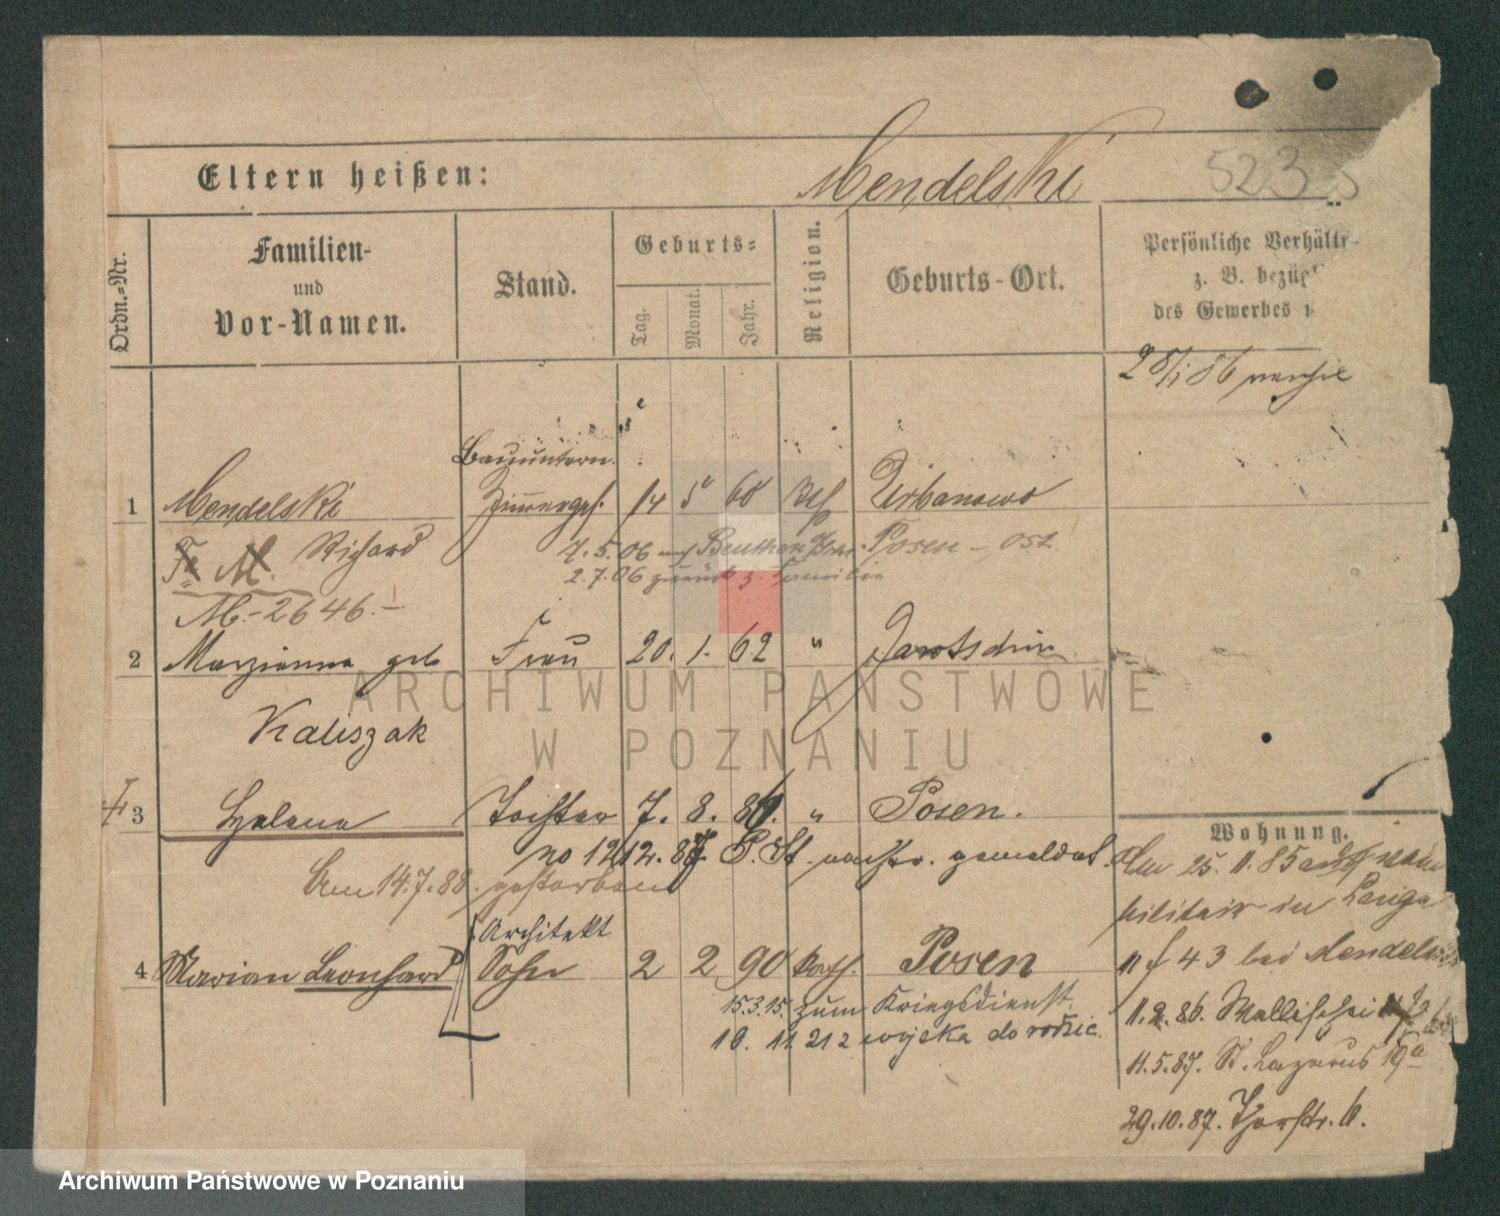 Eltern heißen: Mendelski
5235
Ordn.-Nr.
Familien- und Vor-Namen.
Stand.
Geburts-
Tag.
Monat.
Jahr.
Religion.
Geburts-Ort.
Persönliche Verhält
z. B. bezüg
des Gewerbes
28/1 86
Bauuntern.
1 Mendelski Zimmerges. 14 5 60 Kath Urbanowo
Richard
7.5.06 nach Beuthen Posen-Ost
2.7.06 zurück z. Familie
M.-2646.-
2 Marzianna geb Frau 20. 1. 62 " Jarotschin
Kaliszak
3 Helena Tochter 7. 8. 86. " Posen.
no 12/12. 87 P. St. nachtr. gemeldet.
Am 14.7.88. gestorben
Architekt
4 Marian Leonhard Sohn 2 2 90 Kath. Posen
15.3.15. zum Kriegsdienst.
10. 11. 21 z wojska do rodzic.
Wohnung.
Am 25. 11. 85 vom
Militair in
43 bei Mendelski
11.2.86. Wallischei
11.5.87. St. Lazarus 19a
29.10.87. Thorstr. 6.
ARCHIWUM PAŃSTWOWE
W POZNANIU
Archiwum Państwowe w Poznaniu